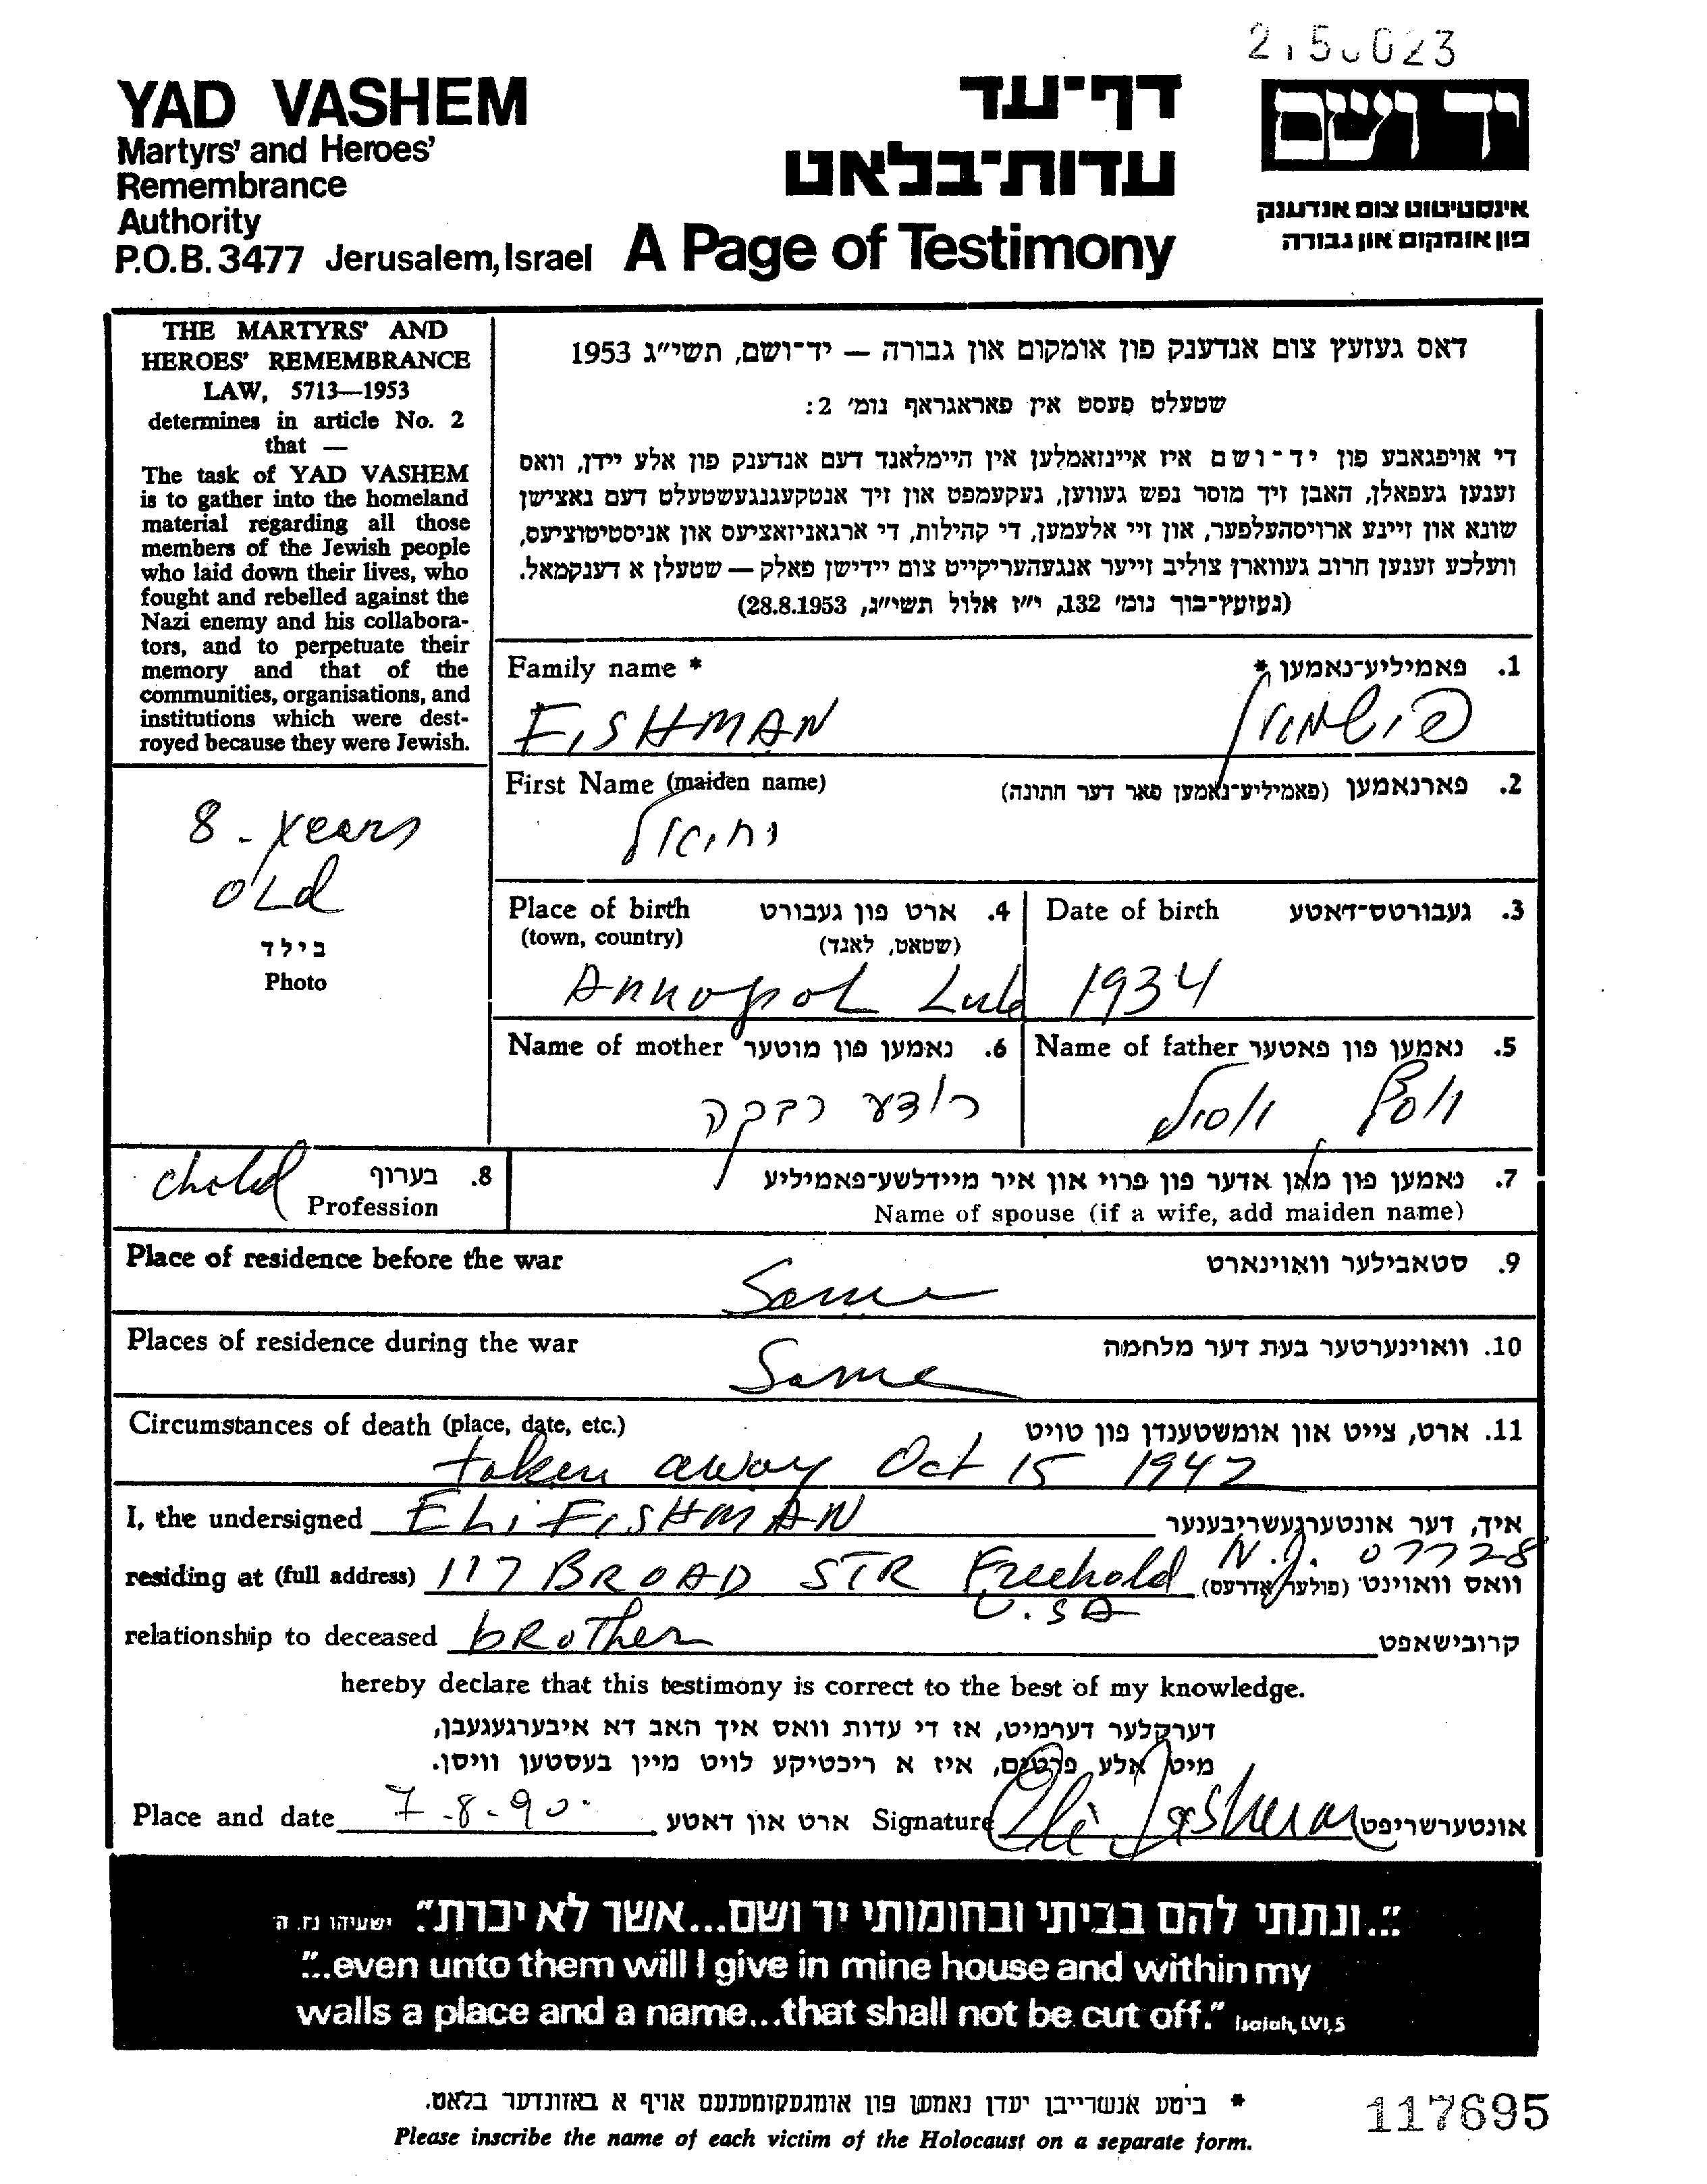 YAD VASHEM
Martyrs' and Heroes'
Remembrance
Authority
P.O.B. 3477 Jerusalem, Israel
דף־עד
עדות־בלאט
A Page of Testimony
יד ושם
אינסטיטוט צום אנדענק
פון אומקום און גבורה
THE MARTYRS' AND
HEROES' REMEMBRANCE
LAW, 5713—1953
determines in article No. 2
that —
The task of YAD VASHEM
is to gather into the homeland
material regarding all those
members of the Jewish people
who laid down their lives, who
fought and rebelled against the
Nazi enemy and his collabora-
tors, and to perpetuate their
memory and that of the
communities, organisations, and
institutions which were dest-
royed because they were Jewish.
דאס געזעץ צום אנדענק פון אומקום און גבורה — יד־ושם, תשי״ג 1953
שטעלט פעסט אין פאראגראף נומ׳ 2:
די אויפגאבע פון יד־ושם איז איינזאמלען אין היימלאנד דעם אנדענק פון אלע יידן, וואס
זענען געפאלן, האבן זיך מוסר נפש געווען, געקעמפט און זיך אנטקעגנגעשטעלט דעם נאצישן
שונא און זיינע ארויסהעלפער, און זיי אלעמען, די קהילות, די ארגאניזאציעס און אניסטיטוציעס,
וועלכע זענען חרוב געווארן צוליב זייער אנגעהעריקייט צום יידישן פאלק — שטעלן א דענקמאל.
(געזעץ־בוך נומ׳ 132, י״ז אלול תשי״ג, 28.8.1953)
Family name * פאמיליע־נאמען * .1
FISHMAN פישמאן
First Name (maiden name) פארנאמען (פאמיליע־נאמען פאר דער חתונה) .2
8 - years
OLd
בילד
Photo
Place of birth ארט פון געבורט .4
(town, country) (שטאט, לאנד)
Annopol Lub
Date of birth געבורטס־דאטע .3
1934
Name of mother נאמען פון מוטער .6
רבקה
Name of father נאמען פון פאטער .5
child
בערוף .8
Profession
נאמען פון מאן אדער פון פרוי און איר מיידלשע־פאמיליע .7
Name of spouse (if a wife, add maiden name)
Place of residence before the war סטאבילער וואוינארט .9
Same
Places of residence during the war וואוינערטער בעת דער מלחמה .10
Same
Circumstances of death (place, date, etc.) ארט, צייט און אומשטענדן פון טויט .11
taken away Oct 15 1942
I, the undersigned ELi FISHMAN איך, דער אונטערגעשריבענער
residing at (full address) 117 BROAD STR Freehold N.J. 07728 וואס וואוינט (פולער אדרעס)
U.SA
relationship to deceased bRoTher קרובישאפט
hereby declare that this testimony is correct to the best of my knowledge.
דערקלער דערמיט, אז די עדות וואס איך האב דא איבערגעגעבן,
מיט אלע פרטים, איז א ריכטיקע לויט מיין בעסטען וויסן.
Place and date 7-8-90 ארט און דאטע Signature Eli Fishman אונטערשריפט
"...ונתתי להם בביתי ובחומותי יד ושם...אשר לא יכרת" ישעיהו נו, ה
"...even unto them will I give in mine house and within my
walls a place and a name...that shall not be cut off." Isaiah, LVI,5
* ביטע אנשרייבן יעדן נאמען פון אומגעקומענעם אויף א באזונדער בלאט.
Please inscribe the name of each victim of the Holocaust on a separate form.
117695